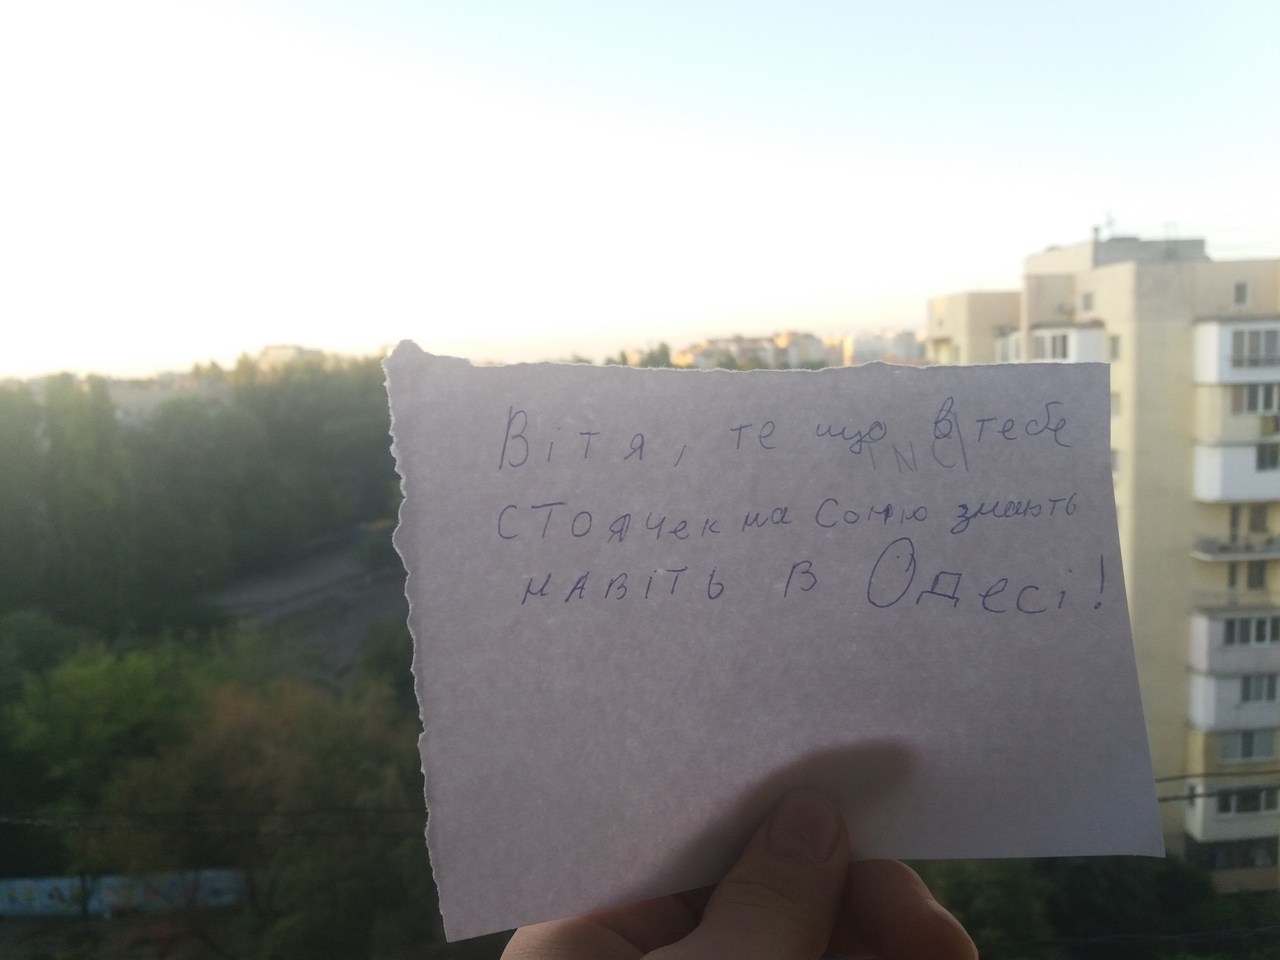 Вітя, те що в тебе
стоячек на Соню знають
навіть в Одесі!